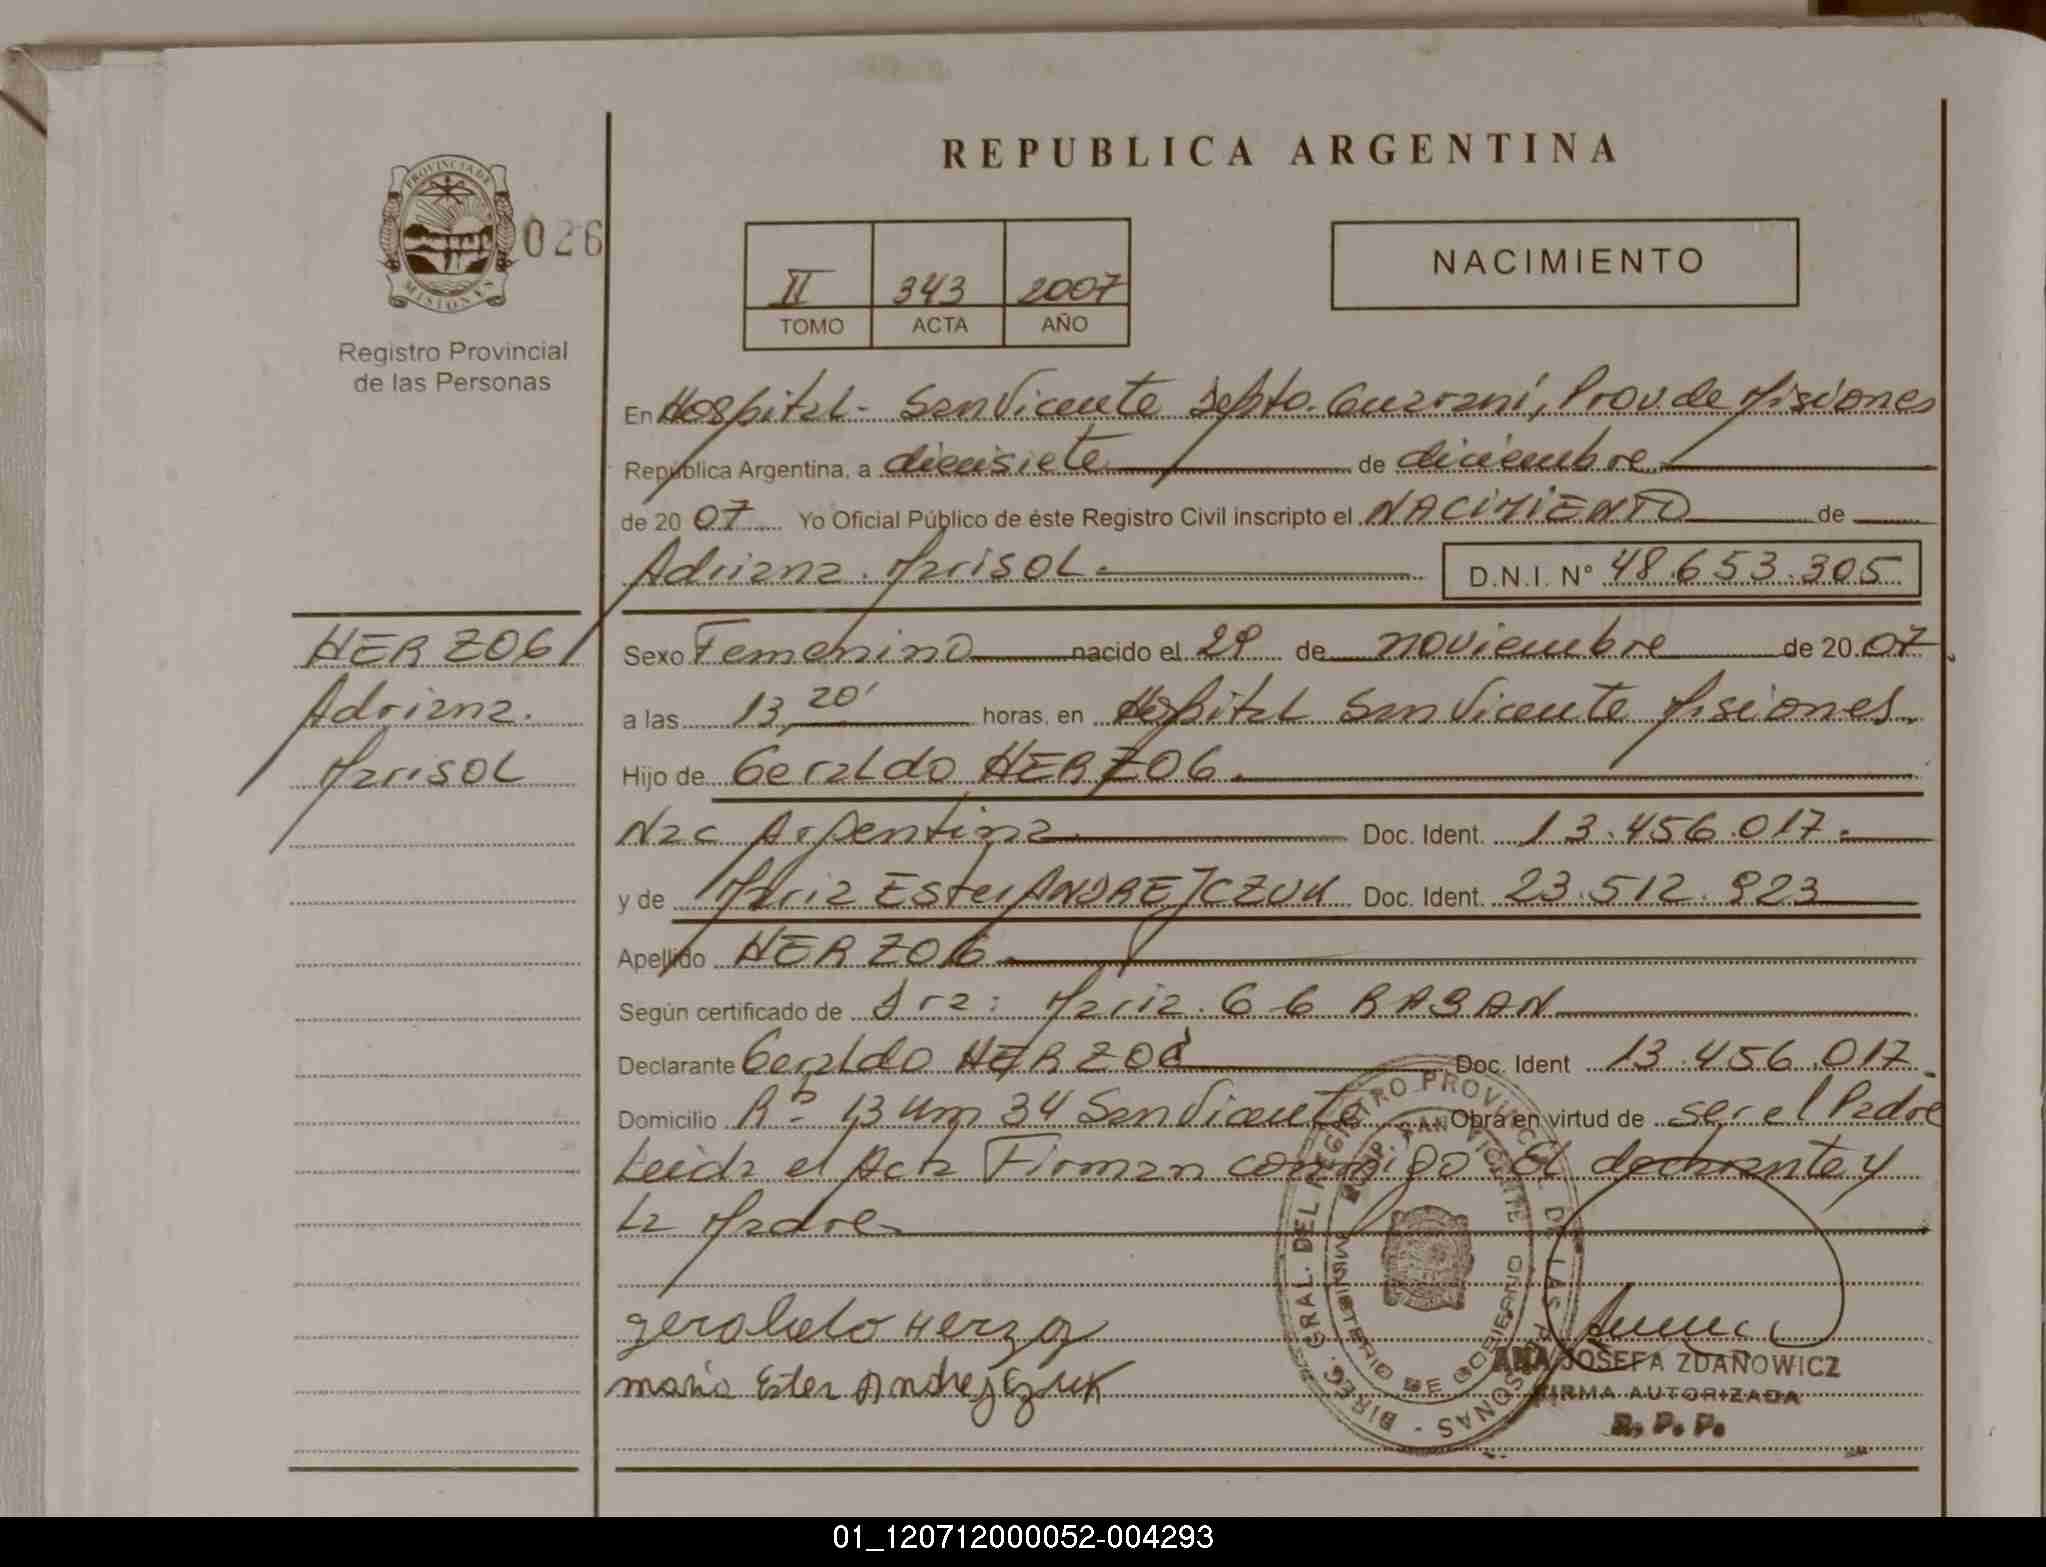 REPUBLICA ARGENTINA
PROVINCIA DE MISIONES
026
Registro Provincial
de las Personas
II 343 2007
TOMO ACTA AÑO
NACIMIENTO
En Hospital - San Vicente Depto. Guaraní, Prov. de Misiones
República Argentina, a diecisiete de diciembre
de 2007 Yo Oficial Público de éste Registro Civil inscripto el NACIMIENTO de
Adriana Marisol.
D.N.I. N° 48.653.305
HERZOG
Adriana
Marisol
Sexo Femenino nacido el 29 de noviembre de 2007.
a las 13,20' horas, en Hospital San Vicente Misiones.
Hijo de Geraldo HERZOG.
Nac Argentina Doc. Ident. 13.456.017.
y de Maria Ester ANDREJCZUK Doc. Ident. 23.512.923
Apellido HERZOG
Según certificado de Dra: Maria G G RABAN
Declarante Geraldo HERZOG Doc. Ident 13.456.017.
Domicilio Rª 13 Km 34 San Vicente Obra en virtud de ser el Padre
Leida el Acta Firman conmigo El declarante y
La Madre
geraldo Herzog
maria Ester Andrejczuk
DIREC. GRAL. DEL REGISTRO PROVINCIAL DE LAS PERSONAS
SAN VICENTE
MINISTERIO DE GOBIERNO
ANA JOSEFA ZDANOWICZ
FIRMA AUTORIZADA
R. P. P.
01_120712000052-004293